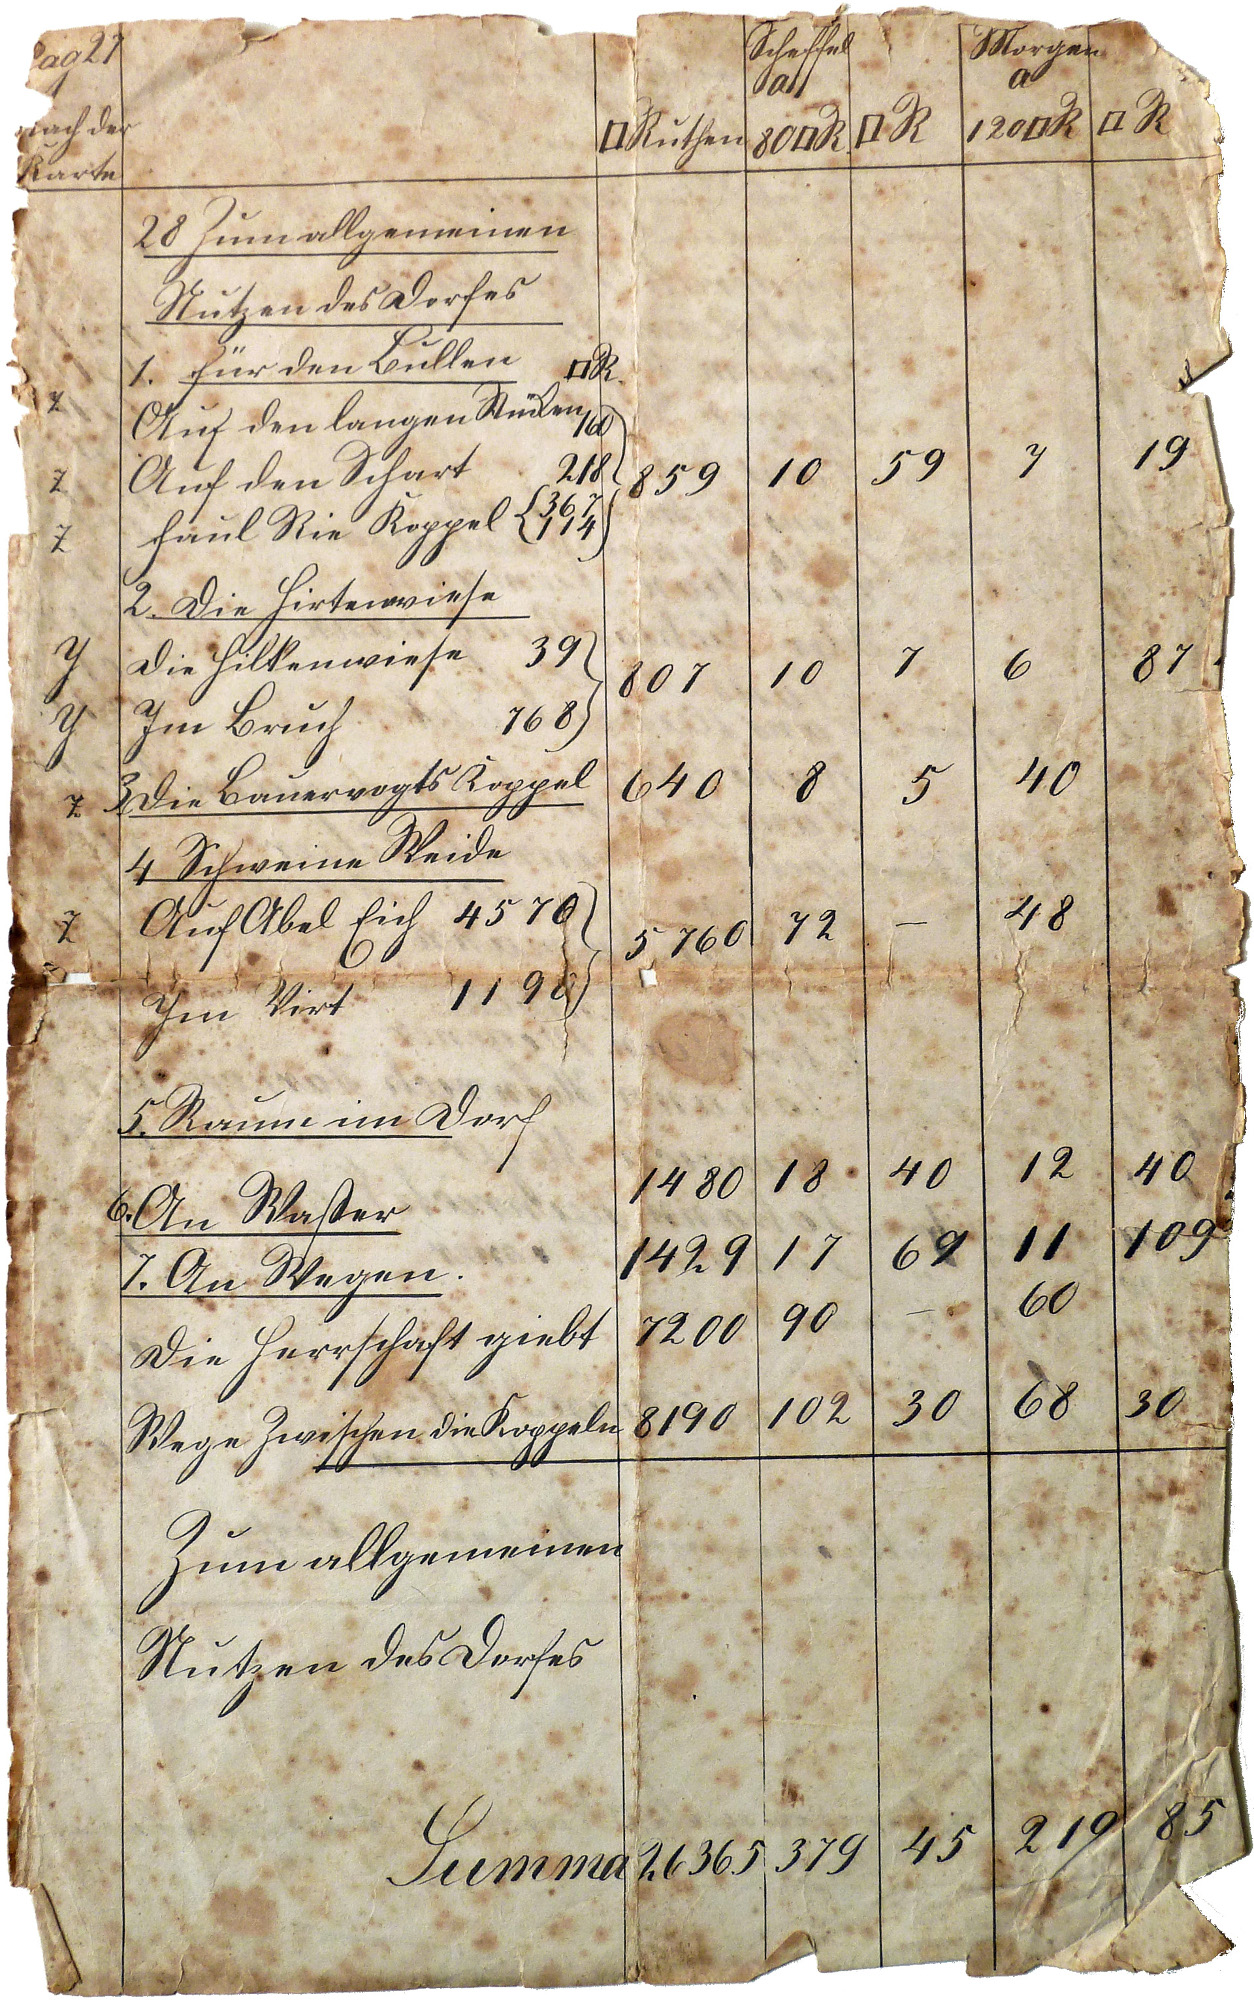 Pag 27
nach der
Karte
□ Ruthen
Scheffel
a
80 □R
□ R
Morgen
a
120 □R
□ R
28 Zum allgemeinen
Nutzen des Dorfes
1. für den Bullen □R.
z Auf den langen Stücken 160
z Auf den Schart 218 859 10 59 7 19
z Faul Rie Koppel 367
114
2. Die Hirtenwiese
y Die Hilkenwiese 39 807 10 7 6 87
y Im Bruch 768
z 3 Die Bauervogts Koppel 640 8 5 40
4 Schweine Weide
z Auf Abel Eich 4570 5760 72 — 48
Im Virt 1190
5. Raum im Dorf 1480 18 40 12 40
6. An Wasser 1429 17 69 11 109
7. An Wegen.
Die Herrschaft giebt 7200 90 — 60
Wege Zwischen die Koppeln 8190 102 30 68 30
Zum allgemeinen
Nutzen des Dorfes
Summa 26365 379 45 219 85